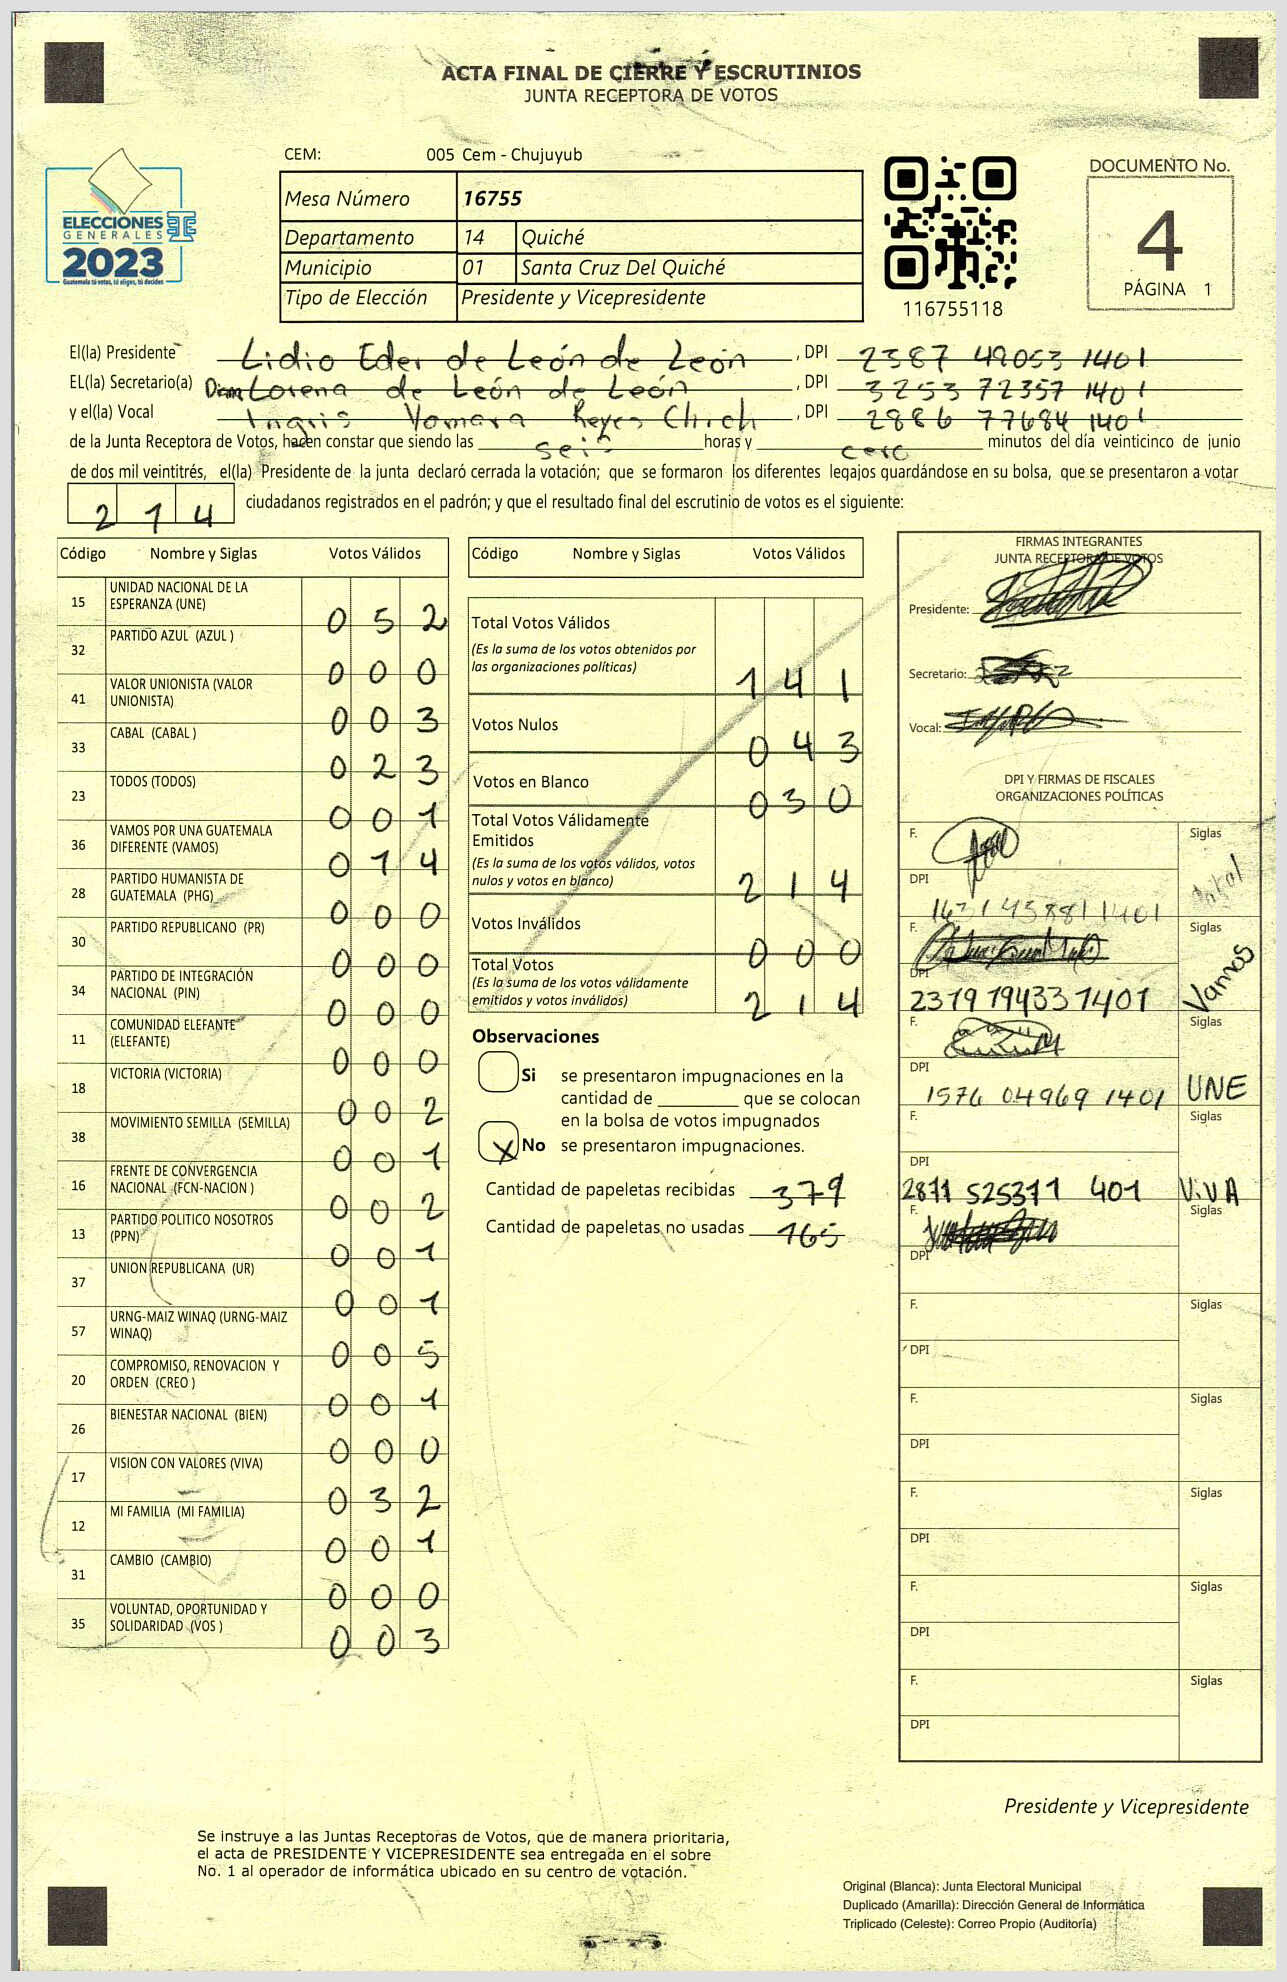 ACTA FINAL DE CIERRE Y ESCRUTINIOS
JUNTA RECEPTORA DE VOTOS
CEM: 005 Cem - Chujuyub
Mesa Número 16755
Departamento 14 Quiché
Municipio 01 Santa Cruz Del Quiché
Tipo de Elección Presidente y Vicepresidente
ELECCIONES
GENERALES
2023
Guatemala tú votas, tú eliges, tú decides
116755118
DOCUMENTO No.
4
PÁGINA 1
El(la) Presidente Lidio Eder de León de León , DPI 2387 49053 1401
EL(la) Secretario(a) Lorena de León de León , DPI 3253 72357 1401
y el(la) Vocal Ingris Yomara Reyes Chich , DPI 2886 77684 1401
de la Junta Receptora de Votos, hacen constar que siendo las seis horas y cero minutos del día veinticinco de junio
de dos mil veintitrés, el(la) Presidente de la junta declaró cerrada la votación; que se formaron los diferentes legajos guardándose en su bolsa, que se presentaron a votar
214 ciudadanos registrados en el padrón; y que el resultado final del escrutinio de votos es el siguiente:
Código Nombre y Siglas Votos Válidos
15 UNIDAD NACIONAL DE LA ESPERANZA (UNE) 052
32 PARTIDO AZUL (AZUL ) 000
41 VALOR UNIONISTA (VALOR UNIONISTA) 003
33 CABAL (CABAL ) 023
23 TODOS (TODOS) 001
36 VAMOS POR UNA GUATEMALA DIFERENTE (VAMOS) 014
28 PARTIDO HUMANISTA DE GUATEMALA (PHG) 000
30 PARTIDO REPUBLICANO (PR) 000
34 PARTIDO DE INTEGRACIÓN NACIONAL (PIN) 000
11 COMUNIDAD ELEFANTE (ELEFANTE) 000
18 VICTORIA (VICTORIA) 002
38 MOVIMIENTO SEMILLA (SEMILLA) 001
16 FRENTE DE CONVERGENCIA NACIONAL (FCN-NACION ) 002
13 PARTIDO POLITICO NOSOTROS (PPN) 001
37 UNION REPUBLICANA (UR) 001
57 URNG-MAIZ WINAQ (URNG-MAIZ WINAQ) 005
20 COMPROMISO, RENOVACION Y ORDEN (CREO ) 001
26 BIENESTAR NACIONAL (BIEN) 000
17 VISION CON VALORES (VIVA) 032
12 MI FAMILIA (MI FAMILIA) 001
31 CAMBIO (CAMBIO) 000
35 VOLUNTAD, OPORTUNIDAD Y SOLIDARIDAD (VOS ) 003
Código Nombre y Siglas Votos Válidos
Total Votos Válidos 141
(Es la suma de los votos obtenidos por
las organizaciones políticas)
Votos Nulos 043
Votos en Blanco 030
Total Votos Válidamente
Emitidos 214
(Es la suma de los votos válidos, votos
nulos y votos en blanco)
Votos Inválidos 000
Total Votos 214
(Es la suma de los votos válidamente
emitidos y votos inválidos)
Observaciones
Si se presentaron impugnaciones en la
cantidad de ________ que se colocan
en la bolsa de votos impugnados
X No se presentaron impugnaciones.
Cantidad de papeletas recibidas 379
Cantidad de papeletas no usadas 165
FIRMAS INTEGRANTES
JUNTA RECEPTORA DE VOTOS
Presidente:
Secretario:
Vocal:
DPI Y FIRMAS DE FISCALES
ORGANIZACIONES POLÍTICAS
F. Siglas
DPI 1631 45881 1401
F. Siglas Vamos
DPI 2319 19433 1401
F. Siglas UNE
DPI 1576 04969 1401
F. Siglas ViVA
DPI 2811 525311 401
F. Siglas
DPI
F. Siglas
DPI
F. Siglas
DPI
F. Siglas
DPI
F. Siglas
DPI
F. Siglas
DPI
Presidente y Vicepresidente
Se instruye a las Juntas Receptoras de Votos, que de manera prioritaria,
el acta de PRESIDENTE Y VICEPRESIDENTE sea entregada en el sobre
No. 1 al operador de informática ubicado en su centro de votación.
Original (Blanca): Junta Electoral Municipal
Duplicado (Amarilla): Dirección General de Informática
Triplicado (Celeste): Correo Propio (Auditoría)